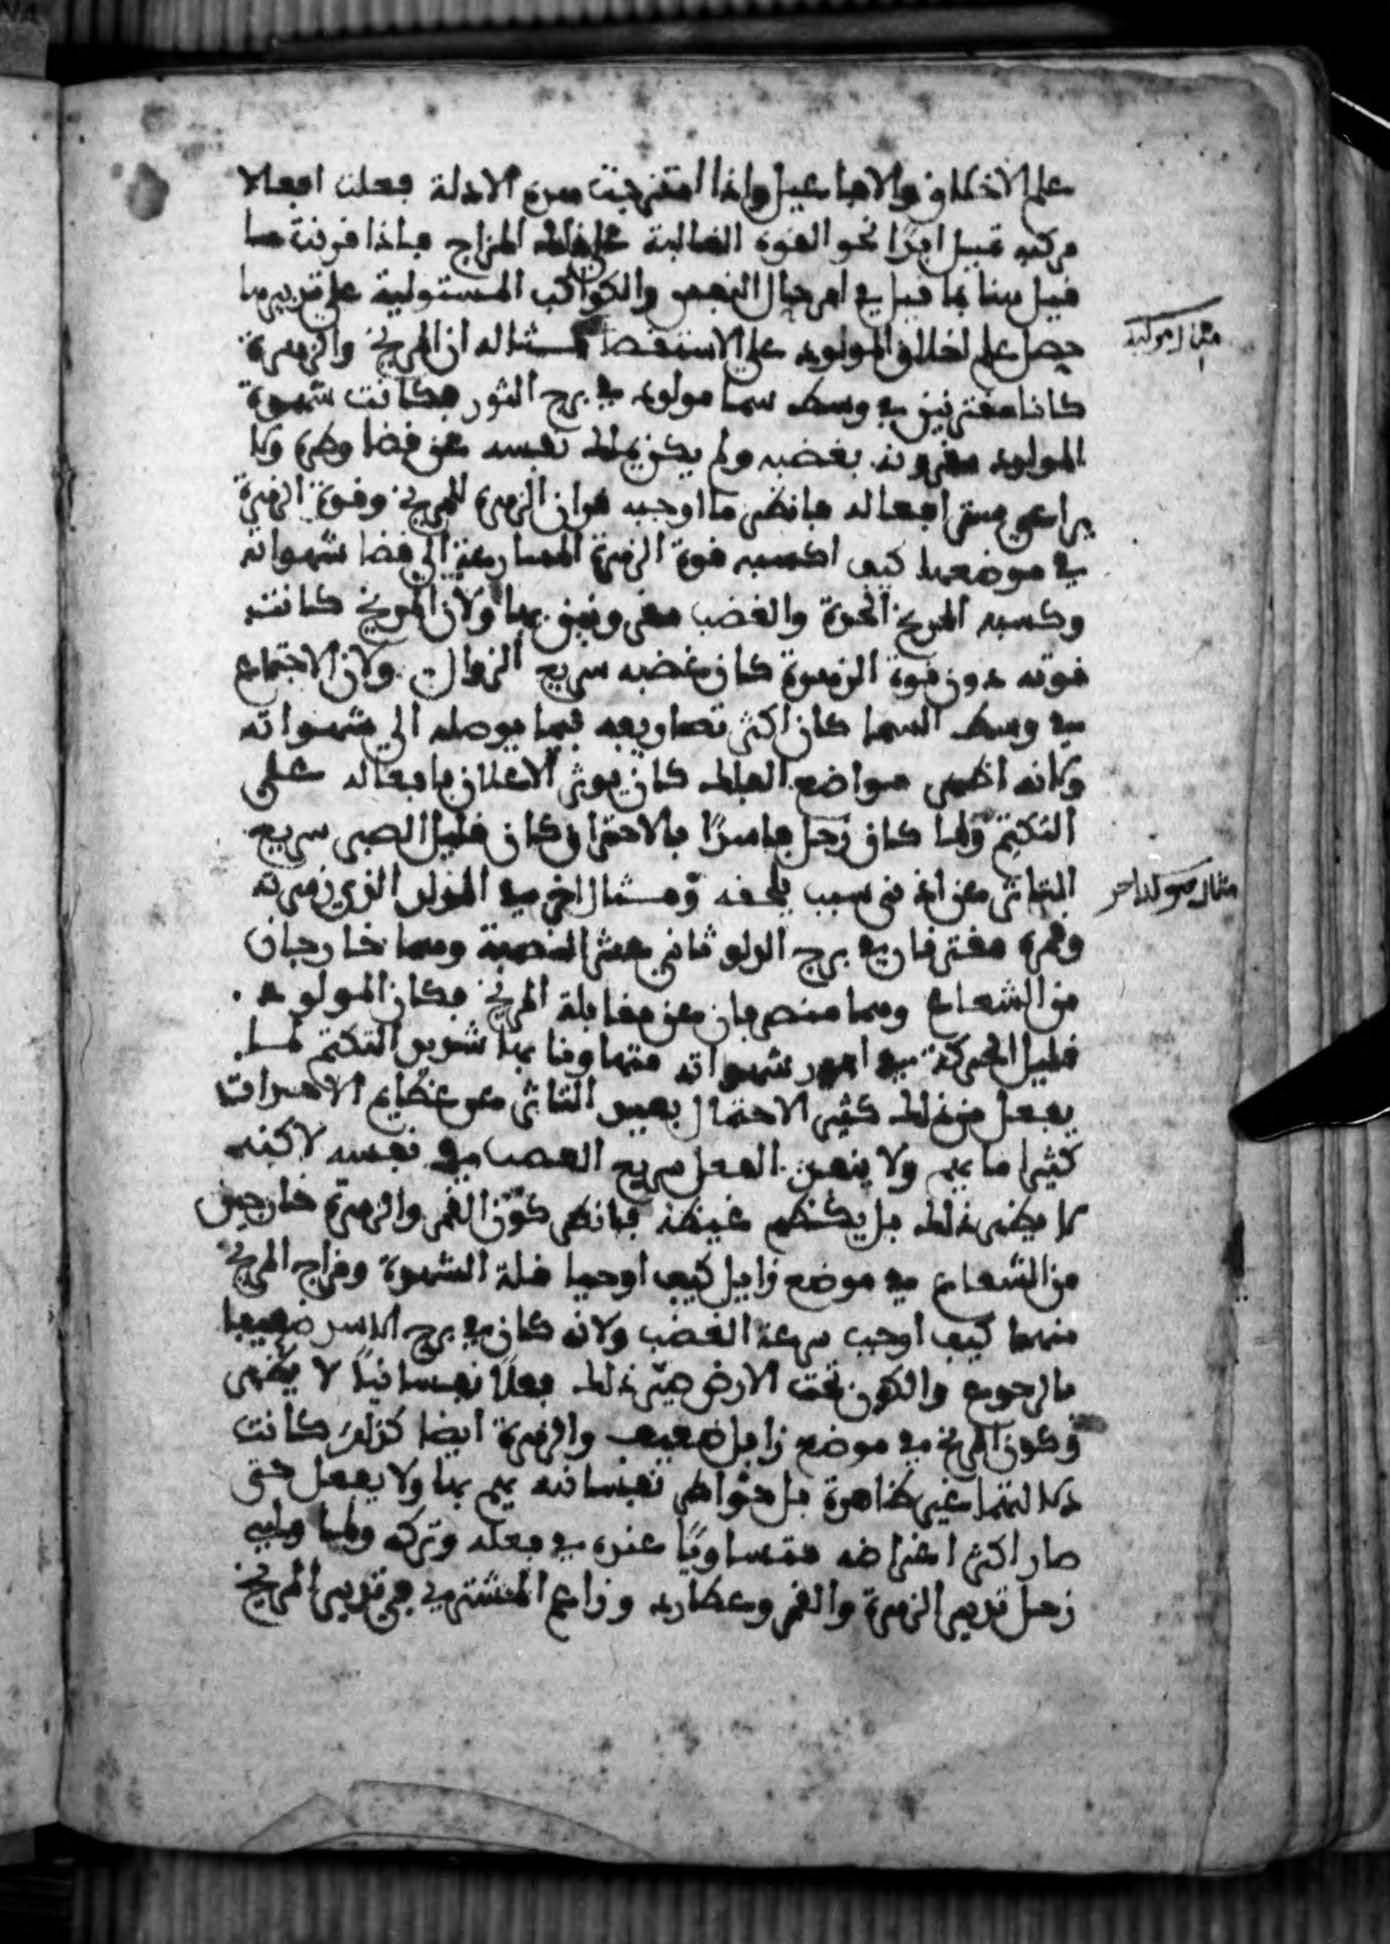 على الاخلاق والافاعيل واذا امتزجت هذه الادلة فعلت افعالا
مركبة تميل ابدًا نحو القوة الغالبة على ذلك المزاج فاذا قرنت ما
قيل هنا بما قيل في امر حال النفس والكواكب المستولية على تدبيرها
حصل علم اخلاق المولود على الاستقصا مثاله ان المريخ والزهرة
كانا مقترنين في وسط سما مولود في برج الثور فكانت شهوة
المولود مقرونة بغضبه ولم يكن يملك نفسه عن قضا وطره ولا
يراعي متى افعاله فانظر ما اوجبه قران الزهرة للمريخ وقوة الزهرة
في موضعها كيف اكسبه قوة الزهرة المسارعة الى قضا شهواته
وكسبه المريخ الحدة والغضب مقرونين بها ولان المريخ كانت
قوته دون قوة الزهرة كان غضبه سريع الزوال ولان الاجتماع
في وسط السما كان اكثر تصاريفه فيما يوصله الى شهواته
ولانه اظهر مواضع الفلك كان يوثر الاعلان بافعاله على
التكتم ولما كان زحل فاسدًا بالاحتراق كان قليل الصبر سريع
التاثر عن ادنى سبب يلحقه ومثال اخر في المولد الذي زهرته
وقمره مقترنان في برج الدلو ثاني عشر النصبة وهما خارجان
من الشعاع وهما منصرفان عن مقابلة المريخ فكان المولود
قليل الحركة في امور شهواته متهاونا بها شديد التكتم لما
يفعل من ذلك كثير الاحتمال بعيد التاثر عن عظايم الامور
كثيرا ما يهم ولا ينفذ الفعل سريع الغضب في نفسه لاكنه
لا يظهر ذلك بل يكظم غيظه فانظر كون القمر والزهرة خارجين
من الشعاع في موضع زايل كيف اوجبا قلة الشهوة ومزاج المريخ
منهما كيف اوجب سرعة الغضب ولانه كان في برج الاسد ضعيفا
بالرجوع والكون تحت الارض صير ذلك فعلا نفسانيًا لا يظهر
وكون المريخ في موضع زايل ضعيف والزهرة ايضا كذلك كانت
دلالتهما غير ظاهرة بل خواطر نفسانية يهم بها ولا يفعل حتى
صار اكثر اغراضه متساويًا عنده في فعله وتركه ولما
زحل تدبير الزهرة والقمر وعطارد المشتري في تدبير المريخ
مثال مولد
مثال مولد اخر